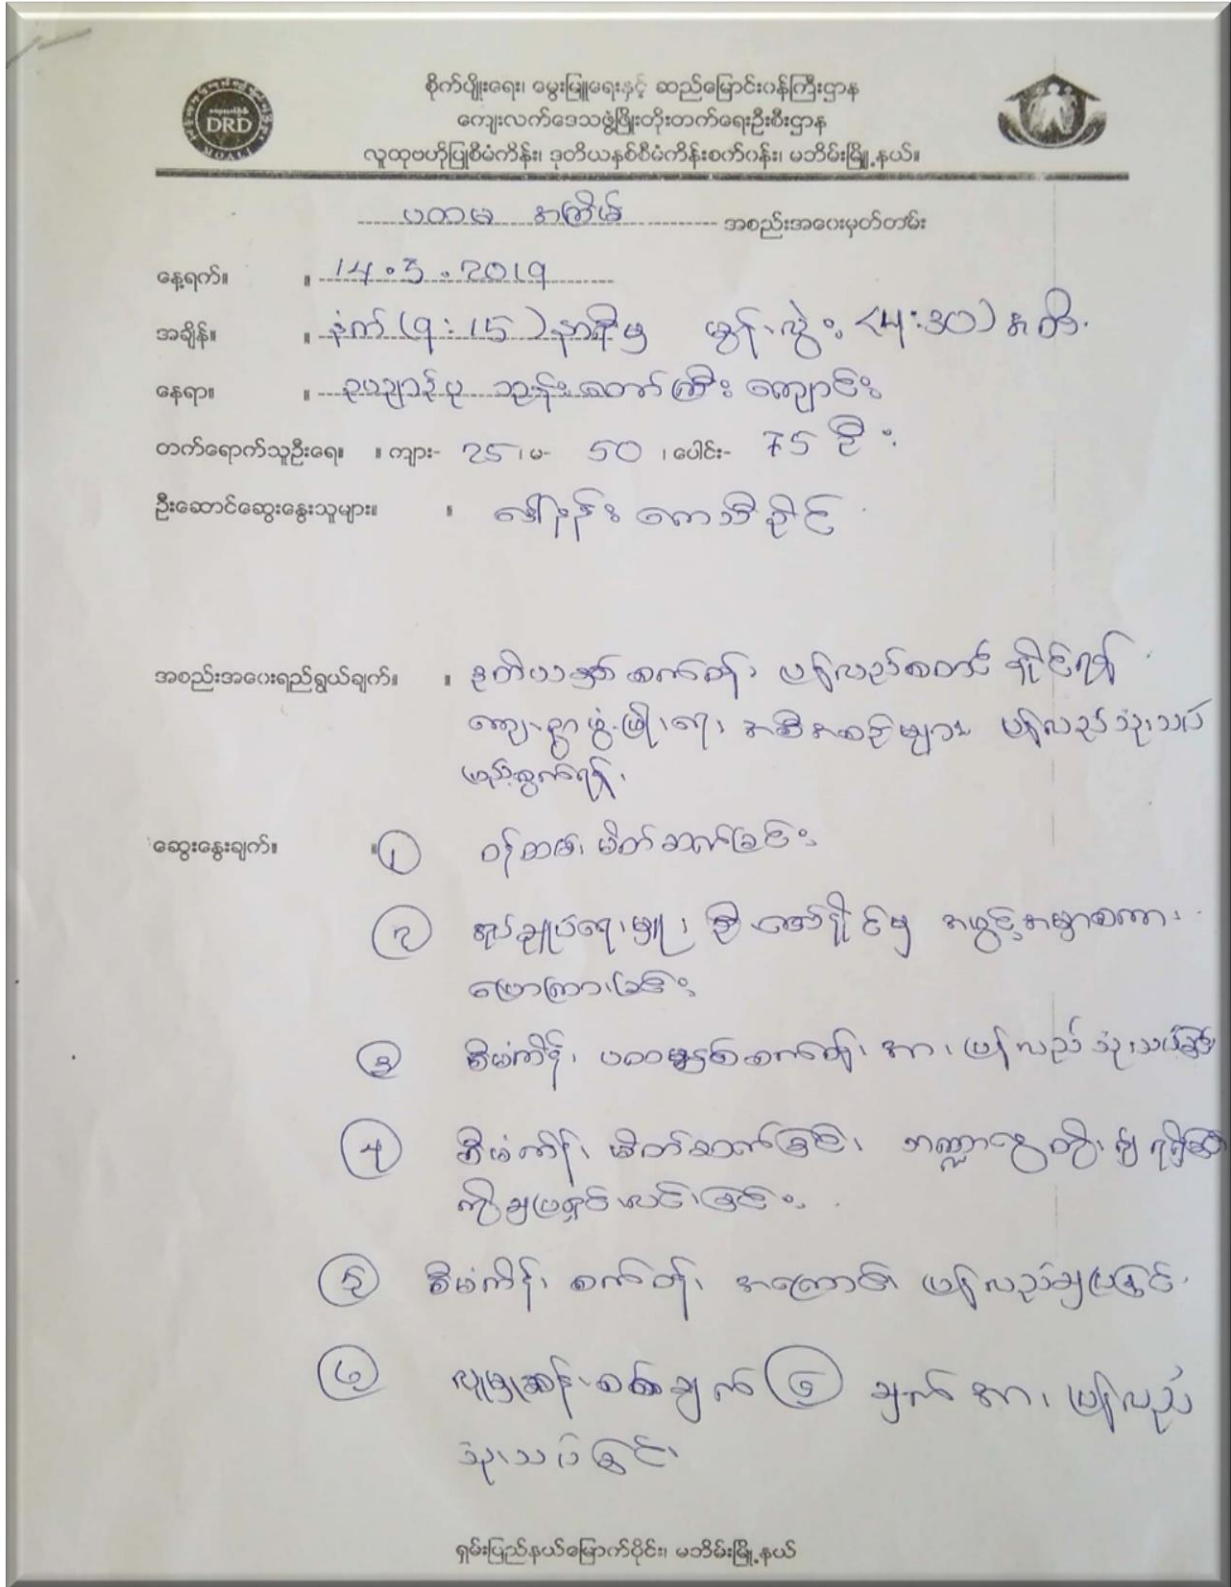 စိုက်ပျိုးရေး၊ မွေးမြူရေးနှင့် ဆည်မြောင်းဝန်ကြီးဌာန
DRD
ကျေးလက်ဒေသဖွံ့ဖြိုးတိုးတက်ရေးဦးစီးဌာန
လူထုဗဟိုပြုစီမံကိန်း၊ ဒုတိယနှစ်စီမံကိန်းစက်ဝန်း၊ မဘိမ်းမြို့နယ်။
ပထမ အကြိမ် အစည်းအဝေးမှတ်တမ်း
နေ့ရက်။ ။ 14.5.2019
အချိန်။ ။ နံက် (9:15) နာရီမှ မွန်းလွဲ (4:30) အထိ
နေရာ။ ။ ဘုန်းတော်ကြီး ကျောင်း
တက်ရောက်သူဦးရေ။ ။ ကျား- 25 ၊ မ- 50 ၊ ပေါင်း- 75 ဦး
ဦးဆောင်ဆွေးနွေးသူများ။ ။ ဒေါ်နန်း
အစည်းအဝေးရည်ရွယ်ချက်။ ။ ဒုတိယနှစ် စက်ဝန်း ပြန်လည်စတင် နိုင်ရန်
ကျေးရွာဖွံ့ဖြိုးရေး အစီအစဉ်များ ပြန်လည်သုံးသပ်
ဖြည့်စွက်ရန်
ဆွေးနွေးချက်။ ။ ၁ ဝန်ထမ်း မိတ်ဆက်ခြင်း
၂ အုပ်ချုပ်ရေးမှူး အဖွင့်အမှာစကား
ပြောကြားခြင်း
၃ စီမံကိန်း ပထမနှစ်စက်ဝန်း အား ပြန်လည်သုံးသပ်ခြင်း
၄ စီမံကိန်း မိတ်ဆက်ခြင်း ဘဏ္ဍာငွေ
ရှင်းလင်းခြင်း
၅ စီမံကိန်း စက်ဝန်း အကြောင်း ပြန်လည်ချပြခြင်း
၆ လူမှုဆန်းစစ်ချက် ၆ ချက် အား ပြန်လည်
သုံးသပ်ခြင်း
ရှမ်းပြည်နယ်မြောက်ပိုင်း၊ မဘိမ်းမြို့နယ်